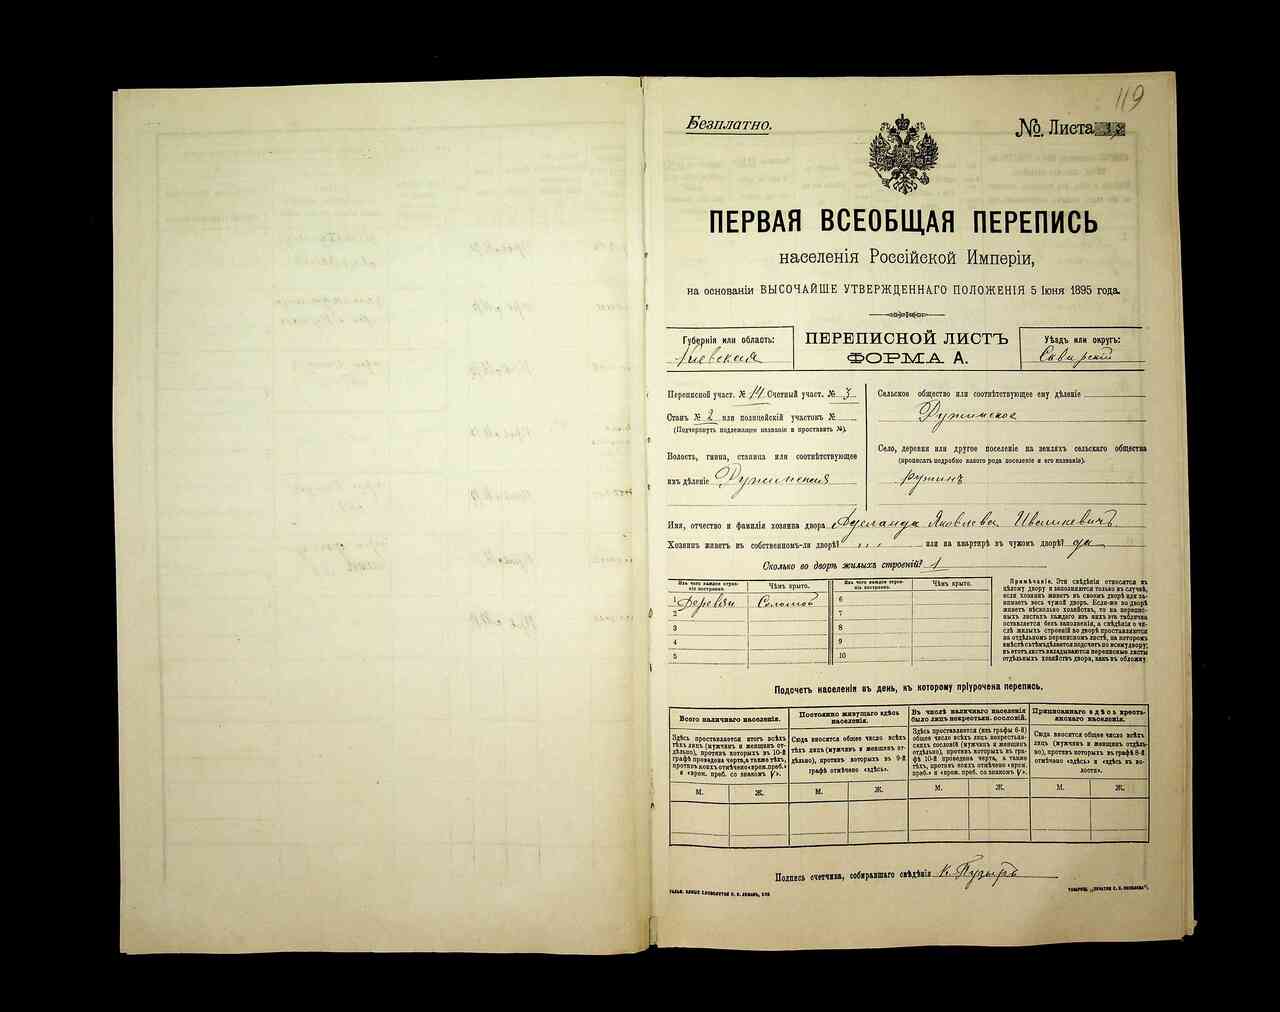 119
Безплатно.
№ Листа
ПЕРВАЯ ВСЕОБЩАЯ ПЕРЕПИСЬ
населенія Россійской Имперіи,
на основаніи ВЫСОЧАЙШЕ УТВЕРЖДЕННАГО ПОЛОЖЕНІЯ 5 Іюня 1895 года.
Губернія или область:
Кіевская
ПЕРЕПИСНОЙ ЛИСТЪ
ФОРМА А.
Уѣздъ или округъ:
Сквирскій
Переписной участ. № 14 Счетный участ. № 3
Станъ № 2 или полицейскій участокъ №
(Подчеркнуть подлежащее названіе и проставить №).
Волость, гмина, станица или соотвѣтствующее
имъ дѣленіе Ружинская
Сельское общество или соотвѣтствующее ему дѣленіе
Ружинское
Село, деревня или другое поселеніе на земляхъ сельскаго общества
(прописать подробно какого рода поселеніе и его названіе).
Ружинъ
Имя, отчество и фамилія хозяина двора Аделаида Яковлева Ивашкевичъ
Хозяинъ живетъ въ собственномъ-ли дворѣ? или на квартирѣ въ чужомъ дворѣ? да
Сколько во дворѣ жилыхъ строеній? 1
Изъ чего каждое строеніе построено.
Чѣмъ крыто.
Изъ чего каждое строеніе построено.
Чѣмъ крыто.
1 Деревян Соломой
2
3
4
5
6
7
8
9
10
Примѣчаніе. Эти свѣдѣнія относятся къ
цѣлому двору и заполняются только въ случаѣ,
если хозяинъ живетъ въ своемъ дворѣ или занимаетъ весь чужой дворъ. Если-же во дворѣ
живетъ нѣсколько хозяйствъ, то на переписныхъ листахъ каждаго изъ нихъ эта табличка
оставляется безъ заполненія, а свѣдѣнія о числѣ жилыхъ строеній во дворѣ проставляются
на отдѣльномъ переписномъ листѣ, на которомъ
вмѣстѣ съ тѣмъ дѣлается подсчетъ по всему двору;
въ этотъ листъ вкладываются переписные листы
отдѣльныхъ хозяйствъ двора, какъ въ обложку.
Подсчетъ населенія въ день, къ которому пріурочена перепись.
Всего наличнаго населенія.
Здѣсь проставляется итогъ всѣхъ
тѣхъ лицъ (мужчинъ и женщинъ отдѣльно), противъ которыхъ въ 10-й
графѣ проведена черта, а также тѣхъ,
противъ коихъ отмѣчено «врем. преб.»
и «врем. преб. со знакомъ V».
Постоянно живущаго здѣсь
населенія.
Сюда вносится общее число всѣхъ
тѣхъ лицъ (мужчинъ и женщинъ отдѣльно), противъ которыхъ въ 9-й
графѣ отмѣчено «здѣсь».
Въ числѣ наличнаго населенія
было лицъ некрестьян. сословій.
Здѣсь проставляется (изъ графы 6-й)
общее число всѣхъ лицъ некрестьянскихъ сословій (мужчинъ и женщинъ
отдѣльно), противъ которыхъ въ графѣ 10-й проведена черта, а также
тѣхъ, противъ коихъ отмѣчено «врем.
преб.» и «врем. преб. со знакомъ V».
Приписаннаго здѣсь крестьянскаго населенія.
Сюда вносится общее число всѣхъ
лицъ (мужчинъ и женщинъ отдѣльно), противъ которыхъ въ графѣ 8-й
отмѣчено «здѣсь» и «здѣсь въ волости».
М. Ж. М. Ж. М. Ж. М. Ж.
Подпись счетчика, собиравшаго свѣдѣнія К. Пузырь